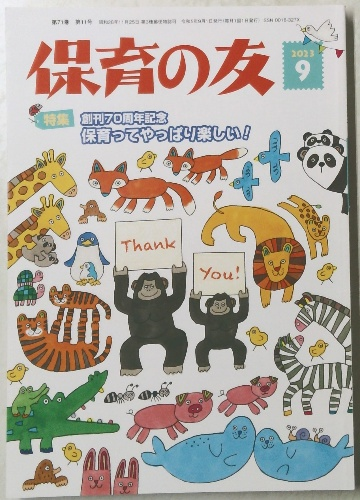 第71巻 第11号
保育の友
2023
9
特集
創刊70周年記念
保育ってやっぱり楽しい！
Thank
You!